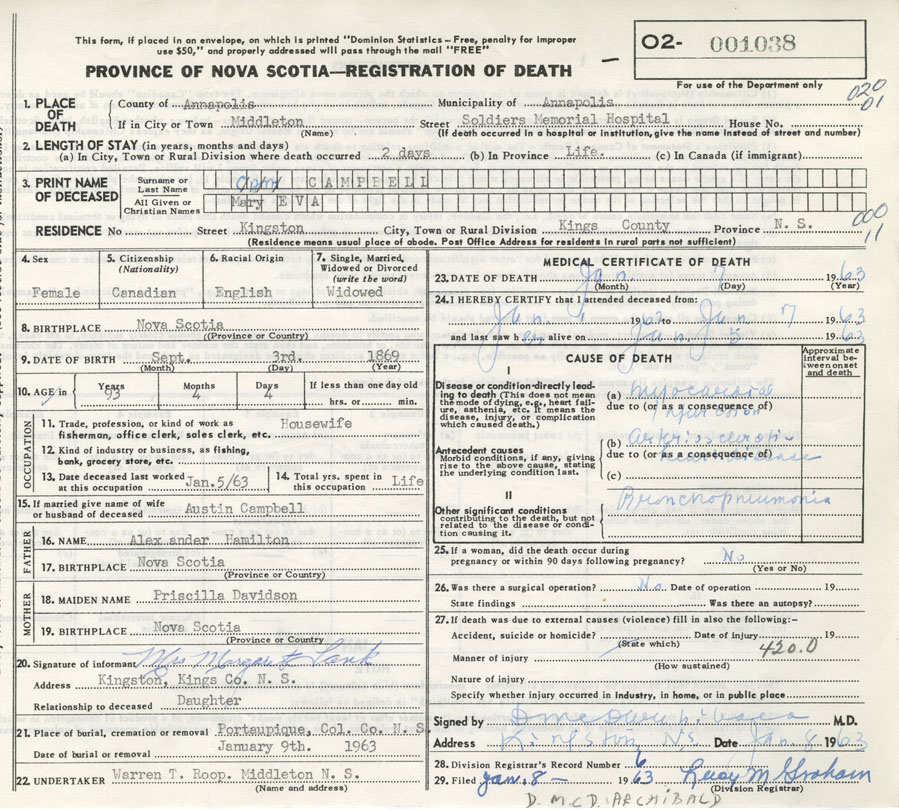 This form, if placed in an envelope, on which is printed "Dominion Statistics - Free, penalty for improper
use $50," and properly addressed will pass through the mail "FREE"
PROVINCE OF NOVA SCOTIA—REGISTRATION OF DEATH
O2- 001038
For use of the Department only
020
01
1. PLACE OF DEATH
County of Annapolis Municipality of Annapolis
If in City or Town Middleton Street Soldiers Memorial Hospital House No.
(Name) (If death occurred in a hospital or institution, give the name instead of street and number)
2. LENGTH OF STAY (in years, months and days)
(a) In City, Town or Rural Division where death occurred 2 days (b) In Province Life. (c) In Canada (if immigrant)
3. PRINT NAME OF DECEASED
Surname or Last Name CAMPBELL
All Given or Christian Names Mary EVA
RESIDENCE No Street Kingston City, Town or Rural Division Kings County Province N. S.
(Residence means usual place of abode. Post Office Address for residents in rural parts not sufficient)
000
11
4. Sex Female
5. Citizenship (Nationality) Canadian
6. Racial Origin English
7. Single, Married, Widowed or Divorced (write the word) Widowed
8. BIRTHPLACE Nova Scotia
(Province or Country)
9. DATE OF BIRTH Sept. 3rd. 1869
(Month) (Day) (Year)
10. AGE in Years 93 Months 4 Days 4 If less than one day old hrs. or min.
OCCUPATION
11. Trade, profession, or kind of work as fisherman, office clerk, sales clerk, etc. Housewife
12. Kind of industry or business, as fishing, bank, grocery store, etc.
13. Date deceased last worked at this occupation Jan.5/63
14. Total yrs. spent in this occupation Life
15. If married give name of wife or husband of deceased Austin Campbell
FATHER
16. NAME Alexander Hamilton
17. BIRTHPLACE Nova Scotia
(Province or Country)
MOTHER
18. MAIDEN NAME Priscilla Davidson
19. BIRTHPLACE Nova Scotia
(Province or Country
20. Signature of informant Mrs Margaret
Address Kingston, Kings Co. N. S.
Relationship to deceased Daughter
21. Place of burial, cremation or removal Portaupique, Col. Co. N. S
Date of burial or removal January 9th. 1963
22. UNDERTAKER Warren T. Roop. Middleton N. S.
(Name and address)
MEDICAL CERTIFICATE OF DEATH
23. DATE OF DEATH Jan 7 1963
(Month) (Day) (Year)
24. I HEREBY CERTIFY that I attended deceased from:
Jan 1 1962 to Jan 7 1963
and last saw h alive on Jan 5 1963
CAUSE OF DEATH
Approximate interval between onset and death
I
Disease or condition directly leading to death (This does not mean the mode of dying, e.g., heart failure, asthenia, etc. It means the disease, injury, or complication which caused death.)
(a) Myocardial
due to (or as a consequence of)
Antecedent causes
Morbid conditions, if any, giving rise to the above cause, stating the underlying condition last.
(b)
due to (or as a consequence of)
(c)
II
Other significant conditions contributing to the death, but not related to the disease or condition causing it.
Bronchopneumonia
25. If a woman, did the death occur during pregnancy or within 90 days following pregnancy? No
(Yes or No)
26. Was there a surgical operation? No Date of operation 19
State findings Was there an autopsy?
27. If death was due to external causes (violence) fill in also the following:-
Accident, suicide or homicide? Date of injury 19
(State which) 420.0
Manner of injury
(How sustained)
Nature of injury
Specify whether injury occurred in industry, in home, or in public place
Signed by M.D.
Address Kingston N.S. Date Jan. 8 1963
28. Division Registrar's Record Number 6
29. Filed Jan. 8 - 1963 M Graham
(Division Registrar)
D. MCD. ARCHIBALD